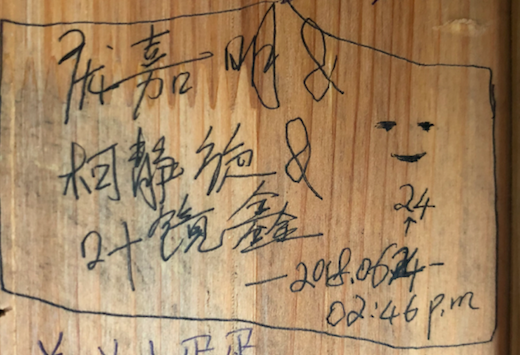 庞嘉明&
柯静旋&
叶镜鑫
24
↑
—2018.06.24—
02:46 p.m